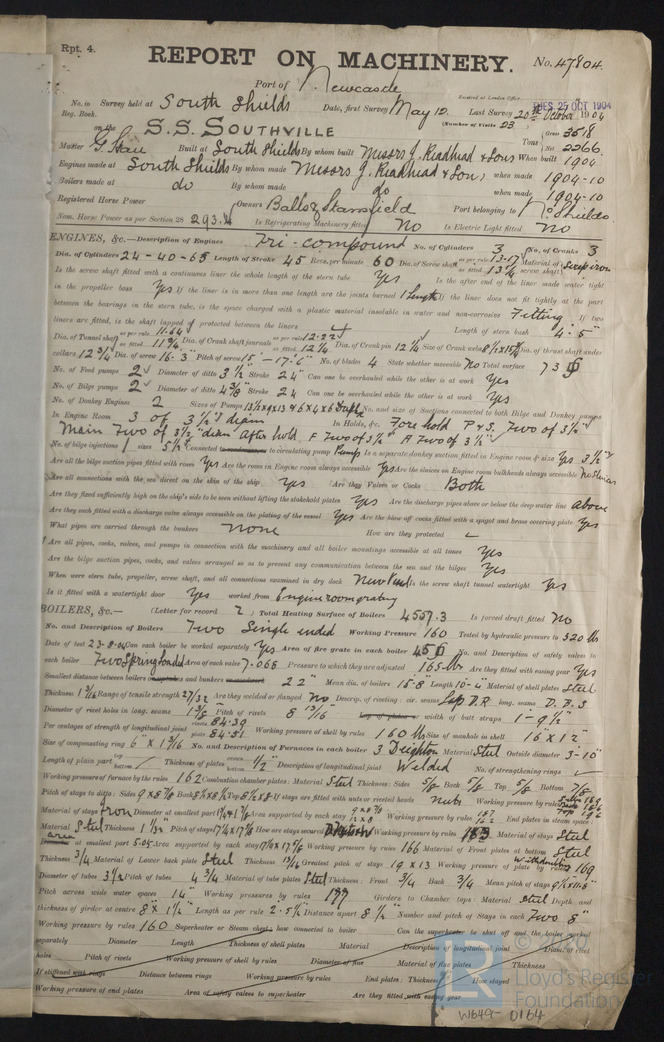 Rpt. 4.
REPORT ON MACHINERY.
No. 47804
Port of Newcastle
Received at London Office
TUES. 25 OCT 1904
No. in Survey held at South Shields Date, first Survey May 12 Last Survey 20th October 1904
Reg. Book.
(Number of Visits 23)
on the S.S. SOUTHVILLE
Tons Gross 3518
Net 2266
Master Built at South Shields By whom built Messrs J. Readhead & Sons When built 1904
Engines made at South Shields By whom made Messrs J. Readhead & Sons when made 1904-10
Boilers made at do By whom made do when made 1904-10
Registered Horse Power Owners Balls & Stansfield Port belonging to No Shields
Nom. Horse Power as per Section 28 293.4 Is Refrigerating Machinery fitted No Is Electric Light fitted No
ENGINES, &c.—Description of Engines Tri-compound No. of Cylinders 3 No. of Cranks 3
Dia. of Cylinders 24-40-65 Length of Stroke 45 Revs. per minute 60 Dia. of Screw shaft as per rule 13.17 as fitted 13 1/4 Material of screw shaft Scrap iron
Is the screw shaft fitted with a continuous liner the whole length of the stern tube Yes Is the after end of the liner made water tight
in the propeller boss Yes If the liner is in more than one length are the joints burned 1 Length If the liner does not fit tightly at the part
between the bearings in the stern tube, is the space charged with a plastic material insoluble in water and non-corrosive Fitting If two
liners are fitted, is the shaft lapped or protected between the liners Length of stern bush 4'-5"
Dia. of Tunnel shaft as per rule 11.64 as fitted 11 3/4 Dia. of Crank shaft journals as per rule 12.22 as fitted 12 1/4 Dia. of Crank pin 12 1/4 Size of Crank webs Dia. of thrust shaft under
collars 12 3/4 Dia. of screw 16'-3" Pitch of screw 15'-17'-6" No. of blades 4 State whether moveable No Total surface 73
No. of Feed pumps 2 Diameter of ditto 3 1/2 Stroke 24" Can one be overhauled while the other is at work Yes
No. of Bilge pumps 2 Diameter of ditto 4 3/8 Stroke 24 Can one be overhauled while the other is at work Yes
No. of Donkey Engines 2 Sizes of Pumps No. and size of Suctions connected to both Bilge and Donkey pumps
In Engine Room 3 of 3 1/2" diam In Holds, &c. Fore hold P & S. Two of 3 1/2"
Main Two of 3 1/2" diam After hold F Two of 3 1/2" A Two of 3 1/2"
No. of bilge injections 1 sizes 5 1/2 Connected to circulating pump Pump Is a separate donkey suction fitted in Engine room & size Yes 3 1/2"
Are all the bilge suction pipes fitted with roses Yes Are the roses in Engine room always accessible Yes Are the sluices on Engine room bulkheads always accessible No Sluices
Are all connections with the sea direct on the skin of the ship Yes Are they Valves or Cocks Both
Are they fixed sufficiently high on the ship's side to be seen without lifting the stokehold plates Yes Are the discharge pipes above or below the deep water line above
Are they each fitted with a discharge valve always accessible on the plating of the vessel Yes Are the blow off cocks fitted with a spigot and brass covering plate Yes
What pipes are carried through the bunkers None How are they protected
Are all pipes, cocks, valves, and pumps in connection with the machinery and all boiler mountings accessible at all times Yes
Are the bilge suction pipes, cocks, and valves arranged so as to prevent any communication between the sea and the bilges Yes
When were stern tube, propeller, screw shaft, and all connections examined in dry dock New Vessel Is the screw shaft tunnel watertight Yes
Is it fitted with a watertight door Yes worked from Engine room grating
BOILERS, &c.— (Letter for record ) Total Heating Surface of Boilers 4557.3 Is forced draft fitted No
No. and Description of Boilers Two Single ended Working Pressure 160 Tested by hydraulic pressure to 320 lb
Date of test 23-8-04 Can each boiler be worked separately Yes Area of fire grate in each boiler 45 No. and Description of safety valves to
each boiler Two Spring Loaded Area of each valve 7.068 Pressure to which they are adjusted 165 lb Are they fitted with easing gear Yes
Smallest distance between boilers and bunkers 22" Mean dia. of boilers 15'-8" Length 10'-6" Material of shell plates Steel
Thickness 1 3/16 Range of tensile strength 27/32 Are they welded or flanged No Descrip. of riveting: cir. seams Lap D.R long. seams D.B.S
Diameter of rivet holes in long. seams 1 3/8 Pitch of rivets 8 13/16 width of butt straps 1'-9 1/2"
Per centages of strength of longitudinal joint rivets 84.39 plate 84.51 Working pressure of shell by rules 160 lb Size of manhole in shell 16" x 12"
Size of compensating ring 6" x 1 3/16 No. and Description of Furnaces in each boiler 3 Deighton Material Steel Outside diameter 3'-10"
Length of plain part top bottom Thickness of plates crown bottom 1/2" Description of longitudinal joint Welded No. of strengthening rings
Working pressure of furnace by the rules 162 Combustion chamber plates: Material Steel Thickness: Sides 5/8 Back 5/8 Top 5/8 Bottom 7/8
Pitch of stays to ditto: Sides 9 x 8 7/8 Back Top If stays are fitted with nuts or riveted heads Nuts Working pressure by rules
Material of stays Iron Diameter at smallest part Area supported by each stay Working pressure by rules End plates in steam space
Material Steel Thickness 1 1/32 Pitch of stays How are stays secured Working pressure by rules 163 Material of stays Steel
at smallest part 5.05 Area supported by each stay Working pressure by rules 166 Material of Front plates at bottom Steel
Thickness 3/4 Material of Lower back plate Steel Thickness 13/16 Greatest pitch of stays 19 x 13 Working pressure of plate by rules 169
Diameter of tubes 3 1/2 Pitch of tubes 4 3/4 Material of tube plates Steel Thickness: Front 3/4 Back 3/4 Mean pitch of stays
Pitch across wide water spaces 14" Working pressures by rules Girders to Chamber tops: Material Steel Depth and
thickness of girder at centre 8" x 1 1/4" Length as per rule 2'-5 3/4 Distance apart 8 1/2" Number and pitch of Stays in each Two 8"
Working pressure by rules 160 Superheater or Steam chest; how connected to boiler Can the superheater be shut off and the boiler worked
separately Diameter Length Thickness of shell plates Material Description of longitudinal joint Diam. of rivet
holes Pitch of rivets Working pressure of shell by rules Diameter of flue Material of flue plates Thickness
If stiffened with rings Distance between rings Working pressure by rules End plates: Thickness How stayed
Working pressure of end plates Area of safety valves to superheater Are they fitted with easing gear
© 2020
LR
Lloyd's Register
Foundation
W649-0164